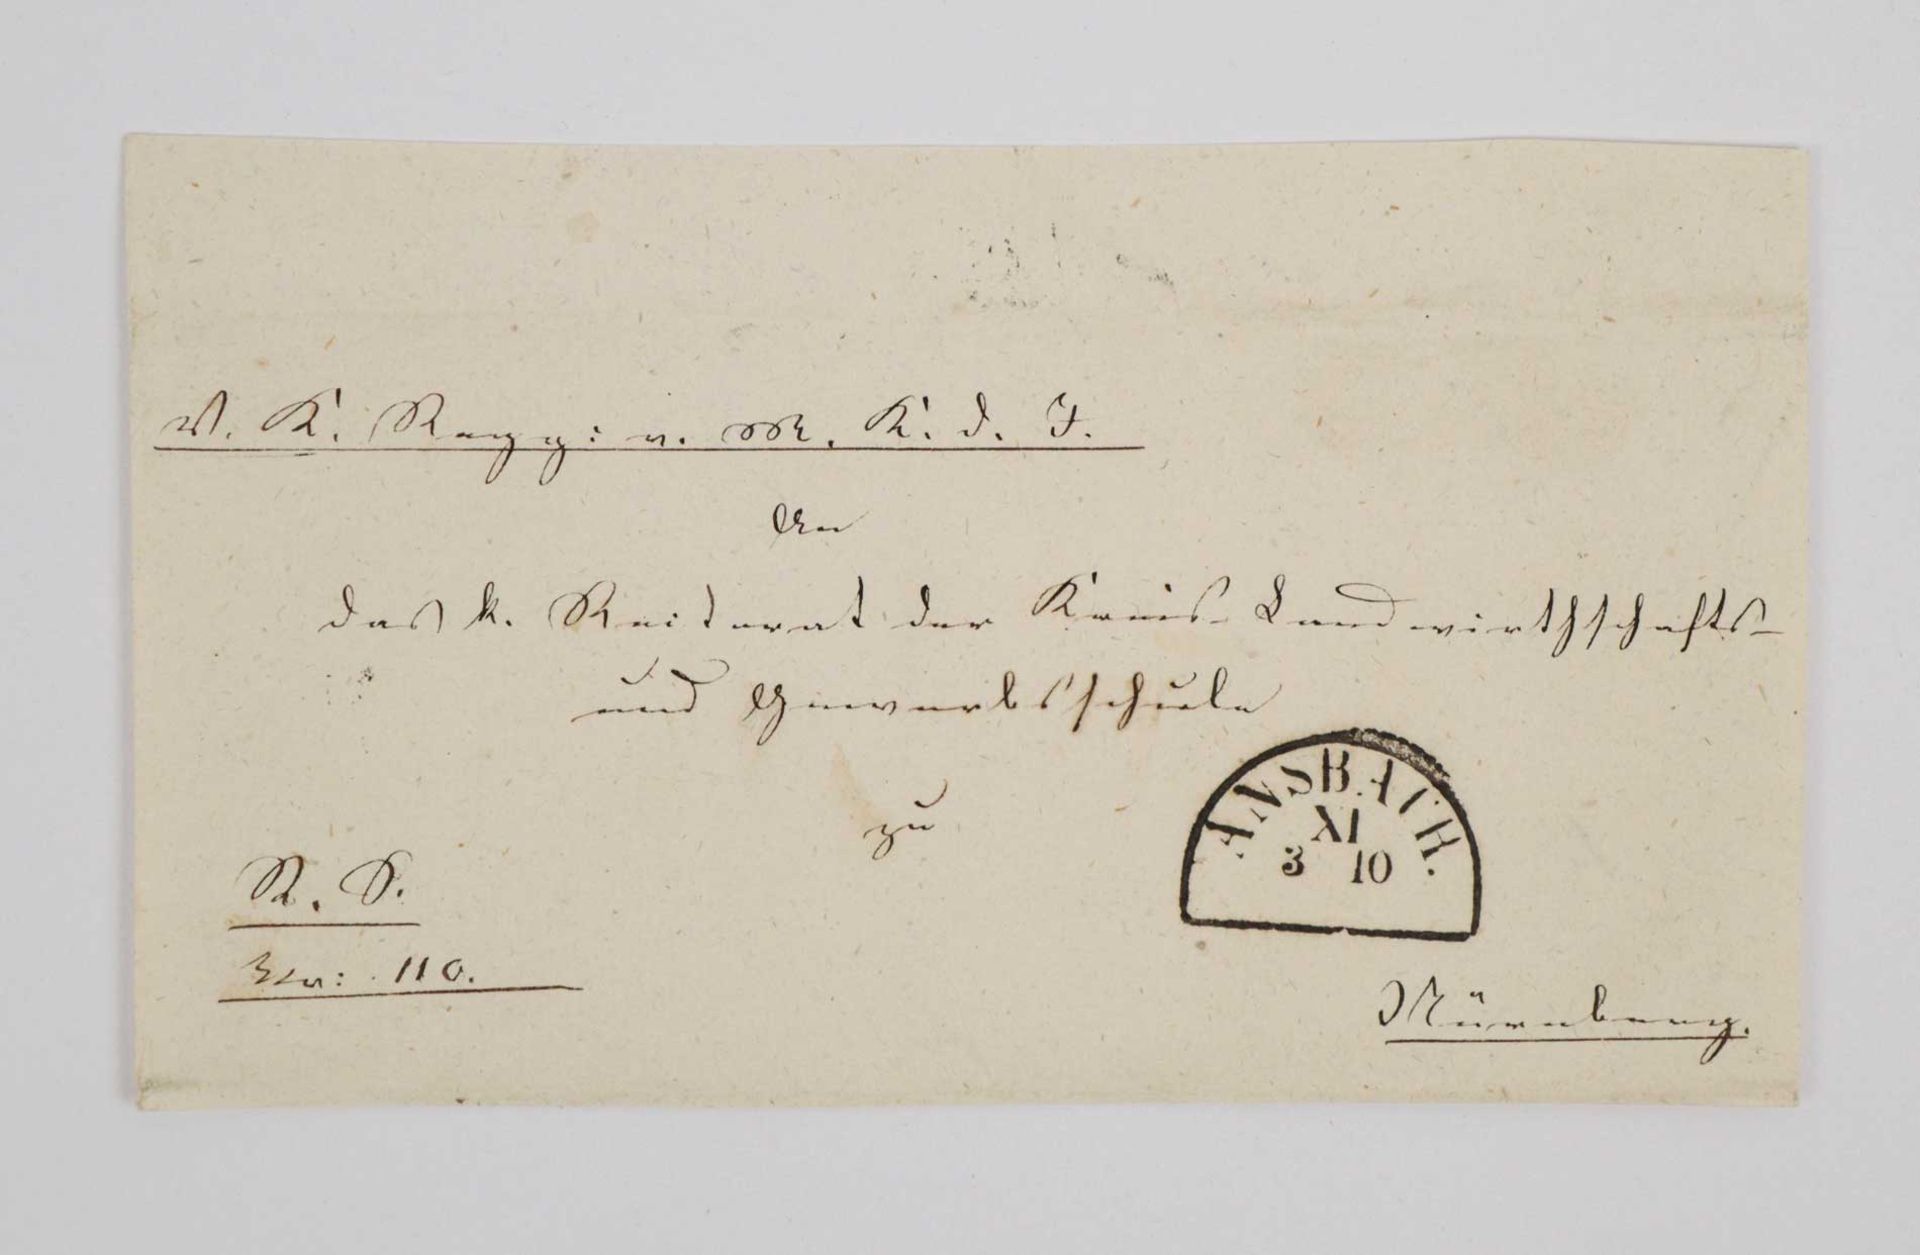 V. K. Regg: v. M. K. d. J.
An
das k. Rectorat der Kreis- Landwirthschafts-
und Gewerbsschule
zu
ANSBACH.
XI
3 10
R. S.
Nr: 110.
Nürnberg.